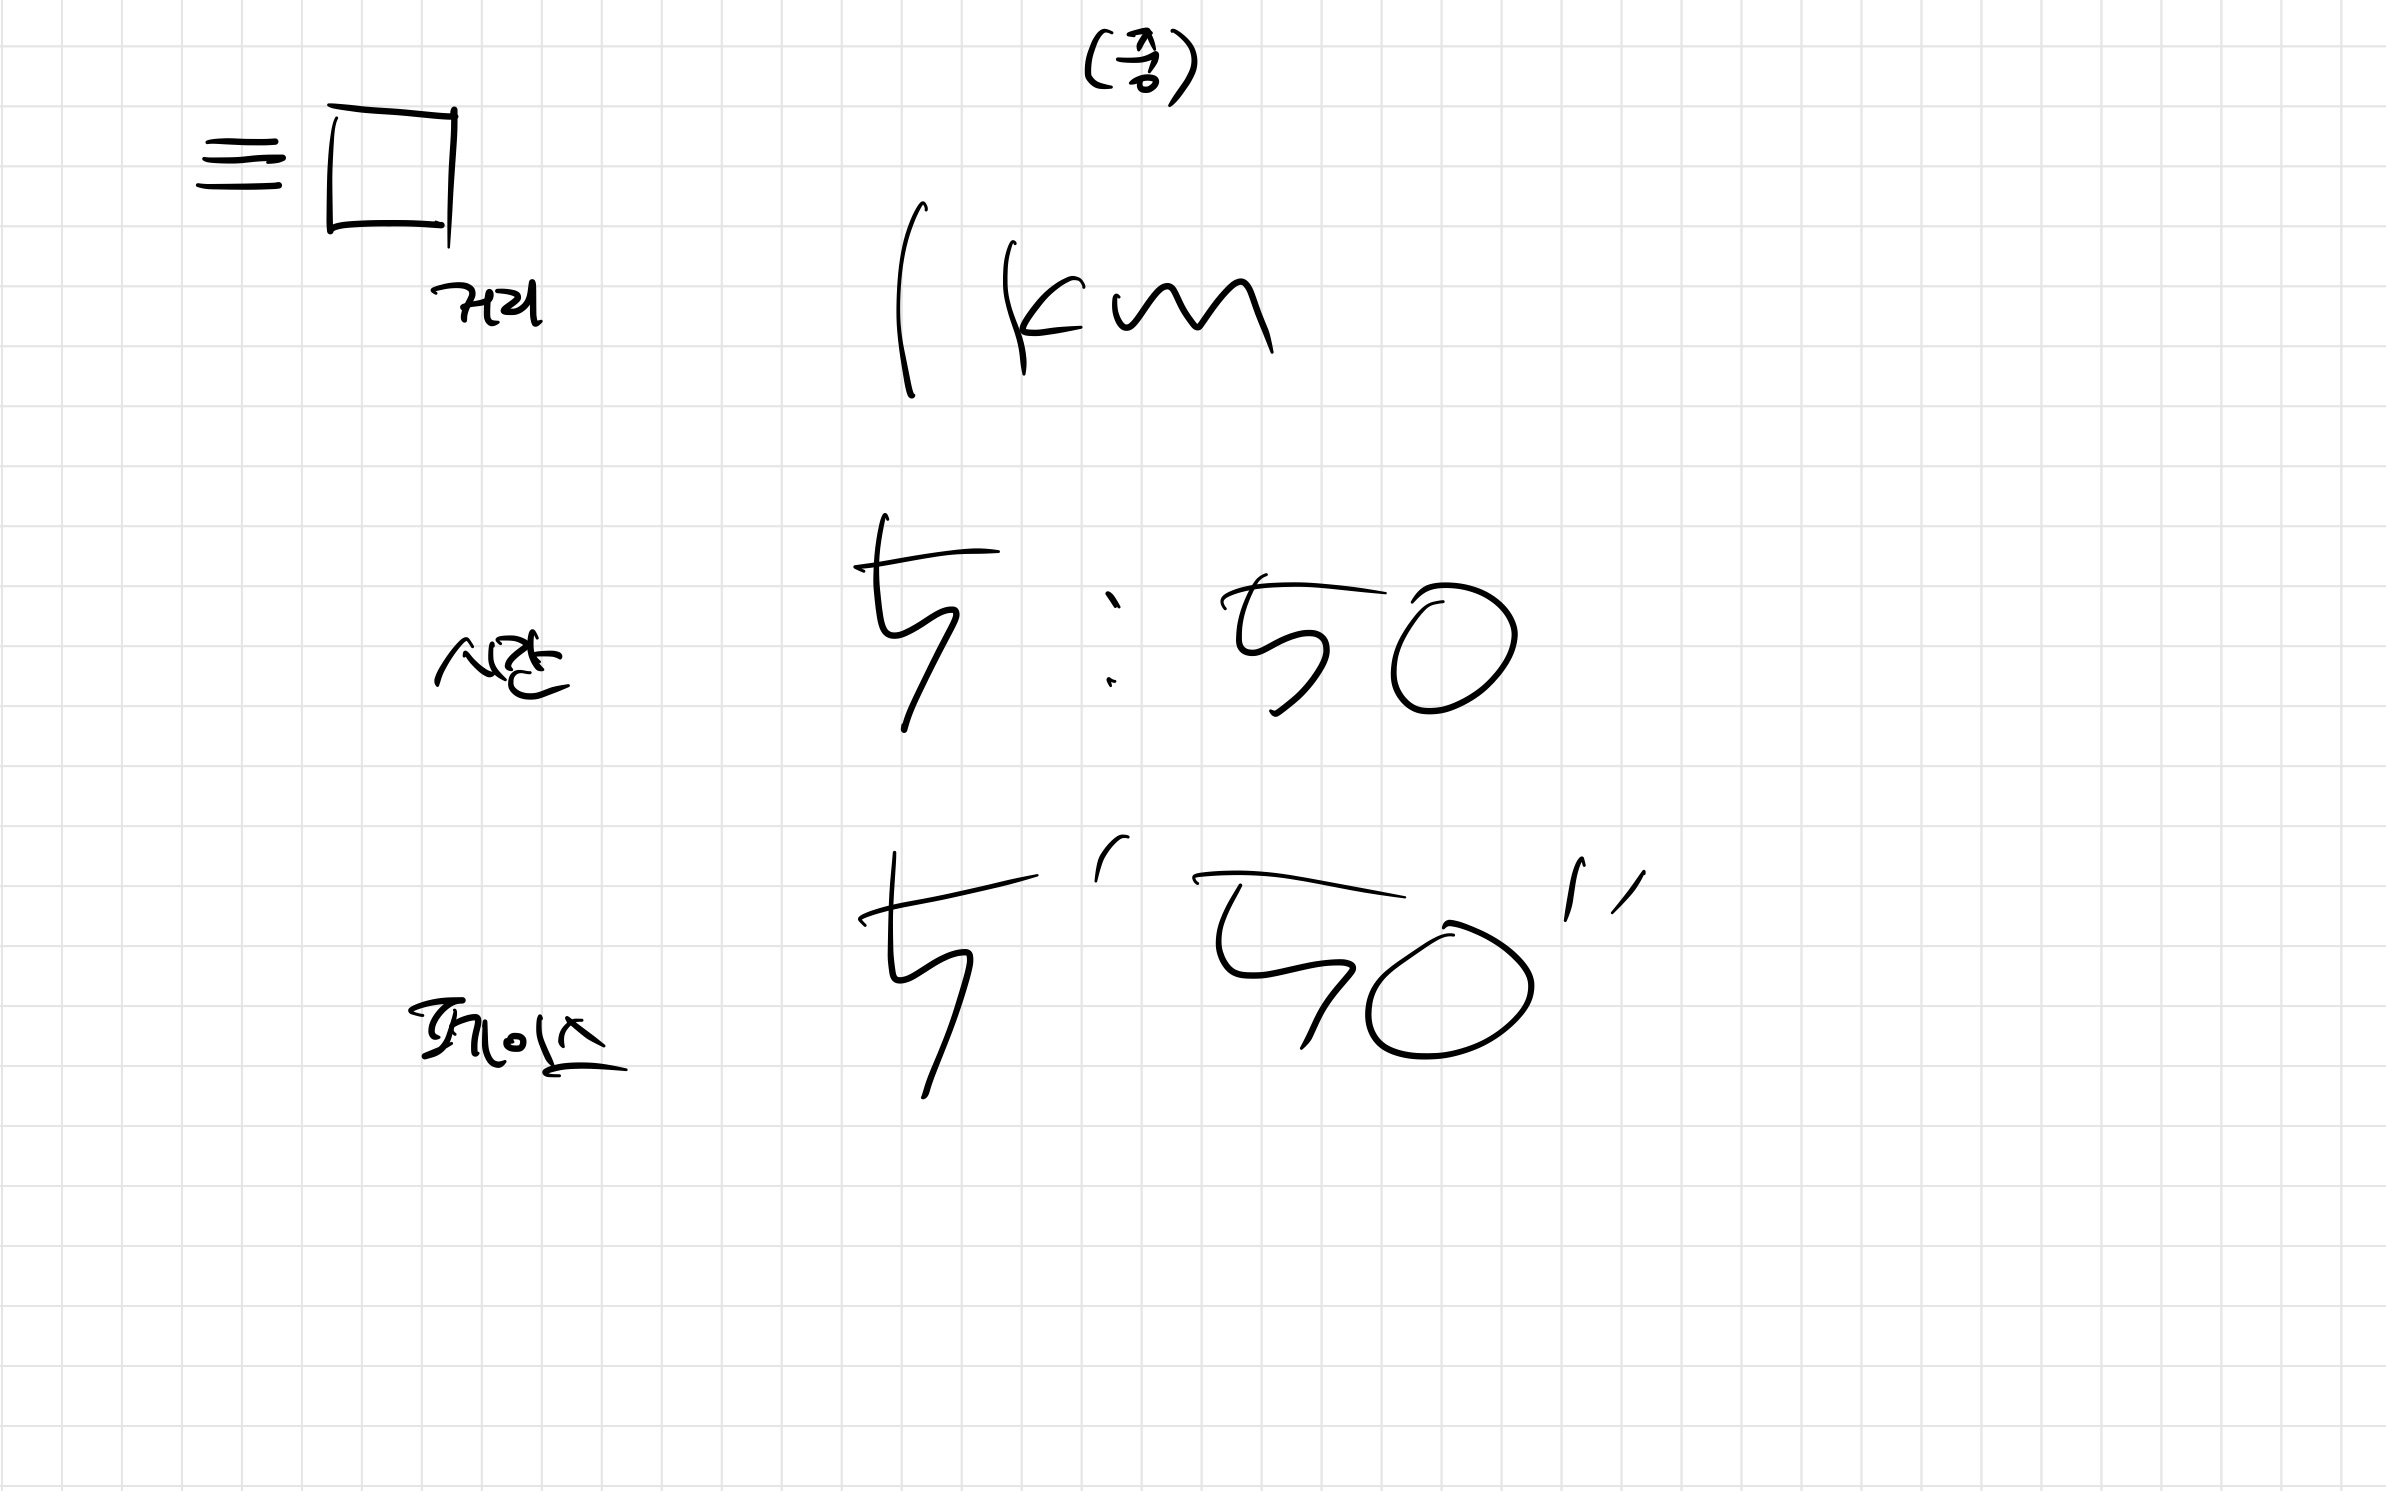 (총)
거리
1km
시간
5:50
페이스
5'50"